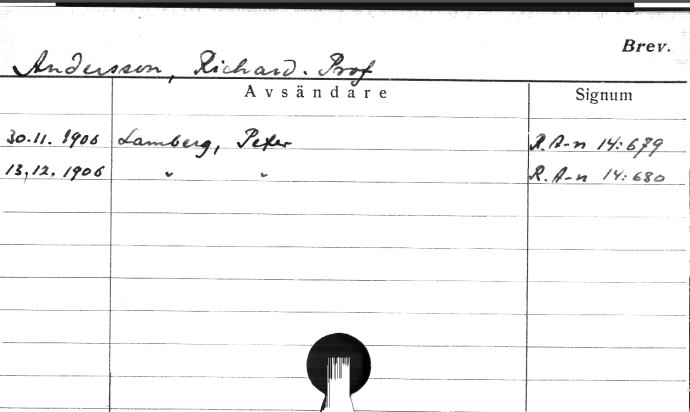 Brev.
Andersson, Richard. Prof
Avsändare Signum
30.11. 1906 Lamberg, Peter R. A-n 14:679
13.12. 1906 " " R. A-n 14:680